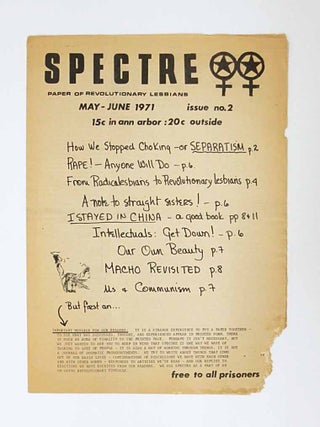 SPECTRE
PAPER OF REVOLUTIONARY LESBIANS
MAY-JUNE 1971 issue no.2
15c in ann arbor : 20c outside
How We Stopped Choking -or SEPARATISM p.2
RAPE! - Anyone Will Do - p.6
From Radicalesbians to Revolutionary lesbians p.4
A note to straight sisters! - p.6
I STAYED IN CHINA - a good book pp 8+11
Intellectuals: Get Down! - p.6
Our Own Beauty p.7
MACHO REVISITED p.8
Us & Communism p.7
But first an...
IMPORTANT MESSAGE FOR OUR READERS: IT IS A STRANGE EXPERIENCE TO PUT A PAPER TOGETHER -
free to all prisoners